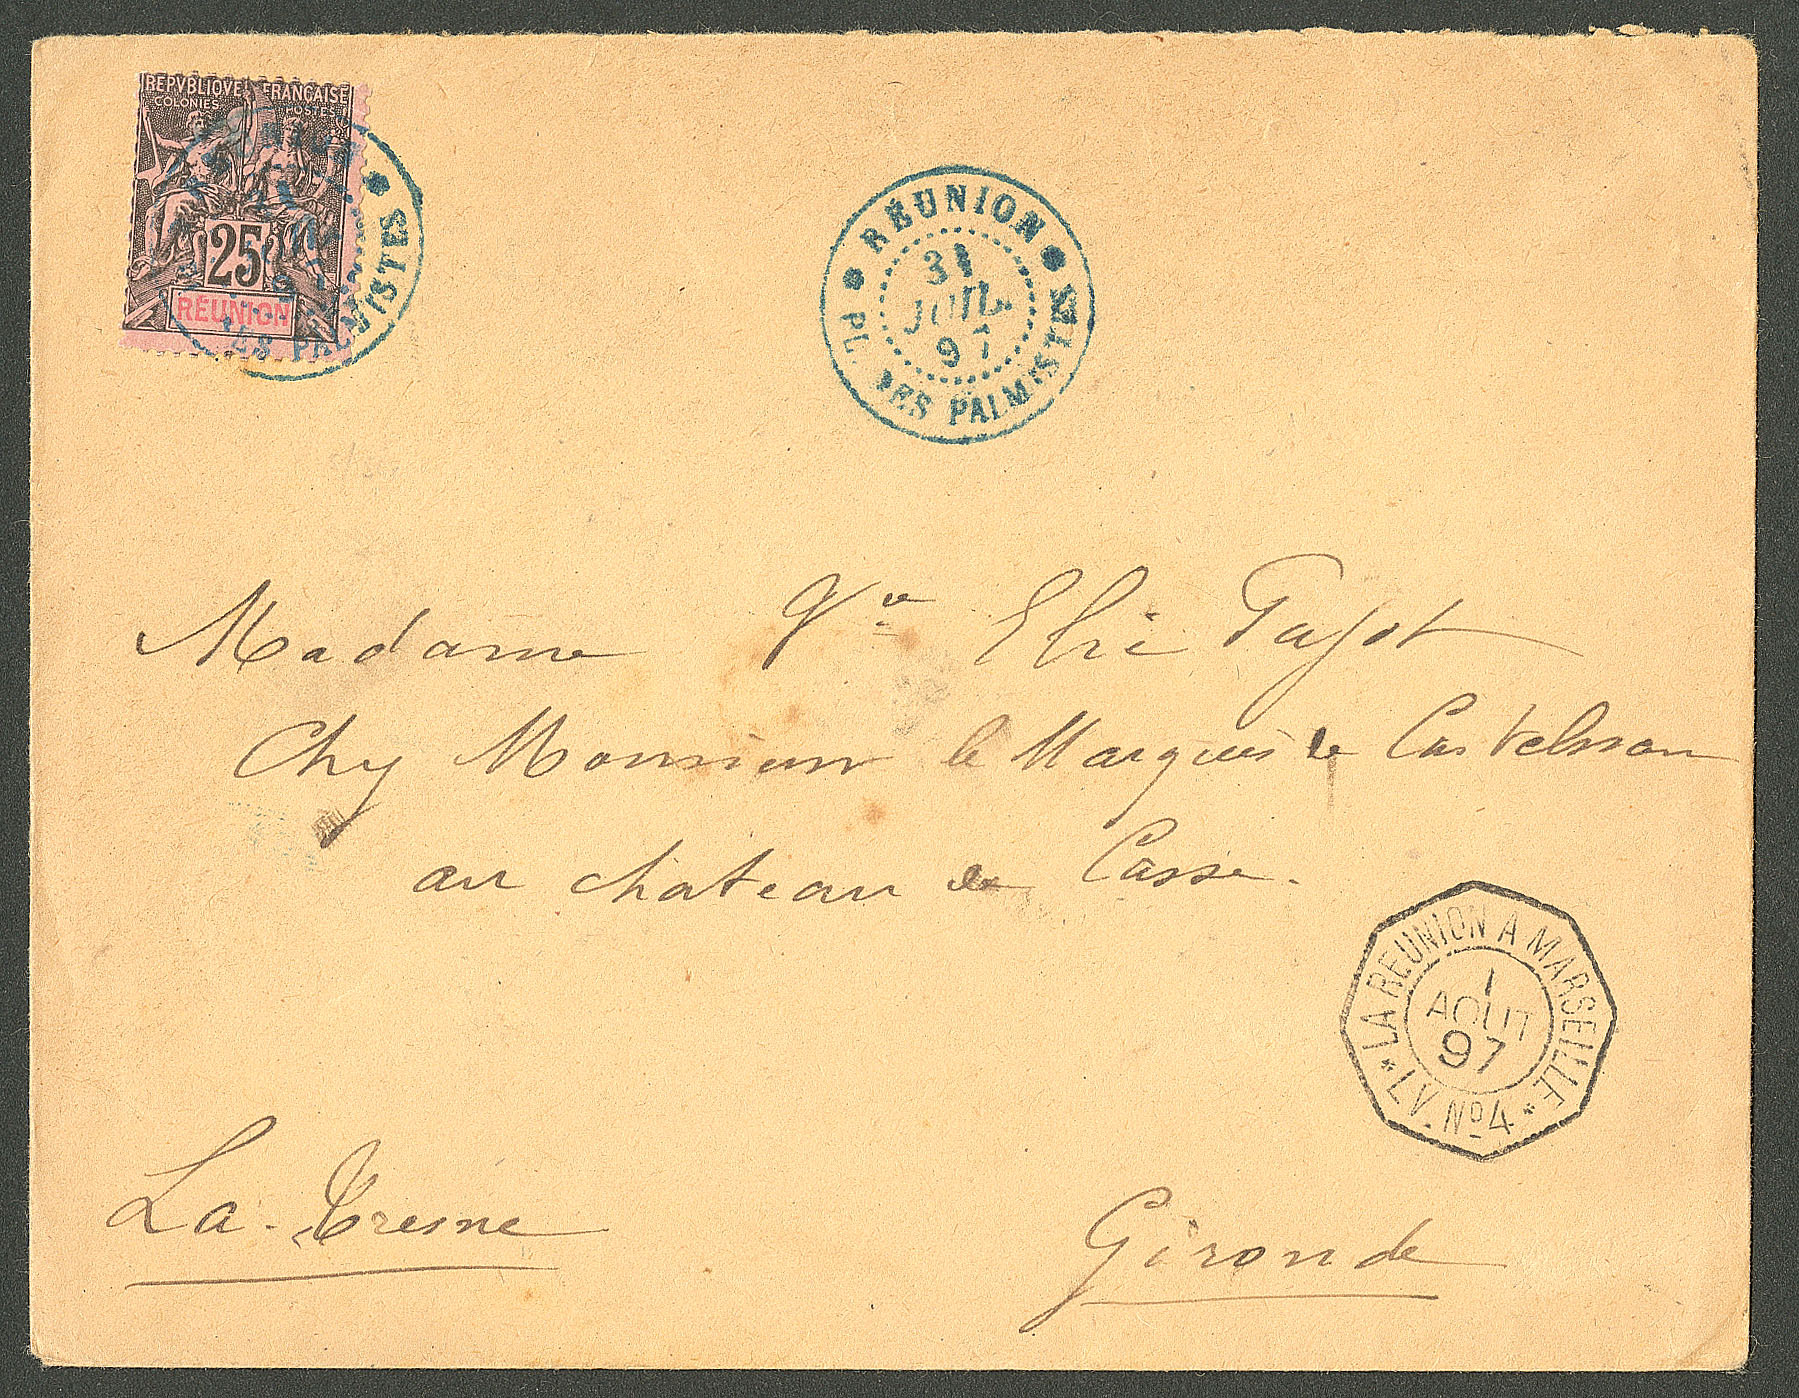 REPVBLIQVE FRANÇAISE
COLONIES POSTES
25
RÉUNION
PALMISTES
RÉUNION
31
JUIL.
97
PL. DES PALMISTES
Madame Vve Elie Pajot
Chez Monsieur le Marquis de Castelnau
au chateau de Casse.
LA REUNION A MARSEILLE
1
AOUT
97
L.V. No 4
La-Tresne
Gironde